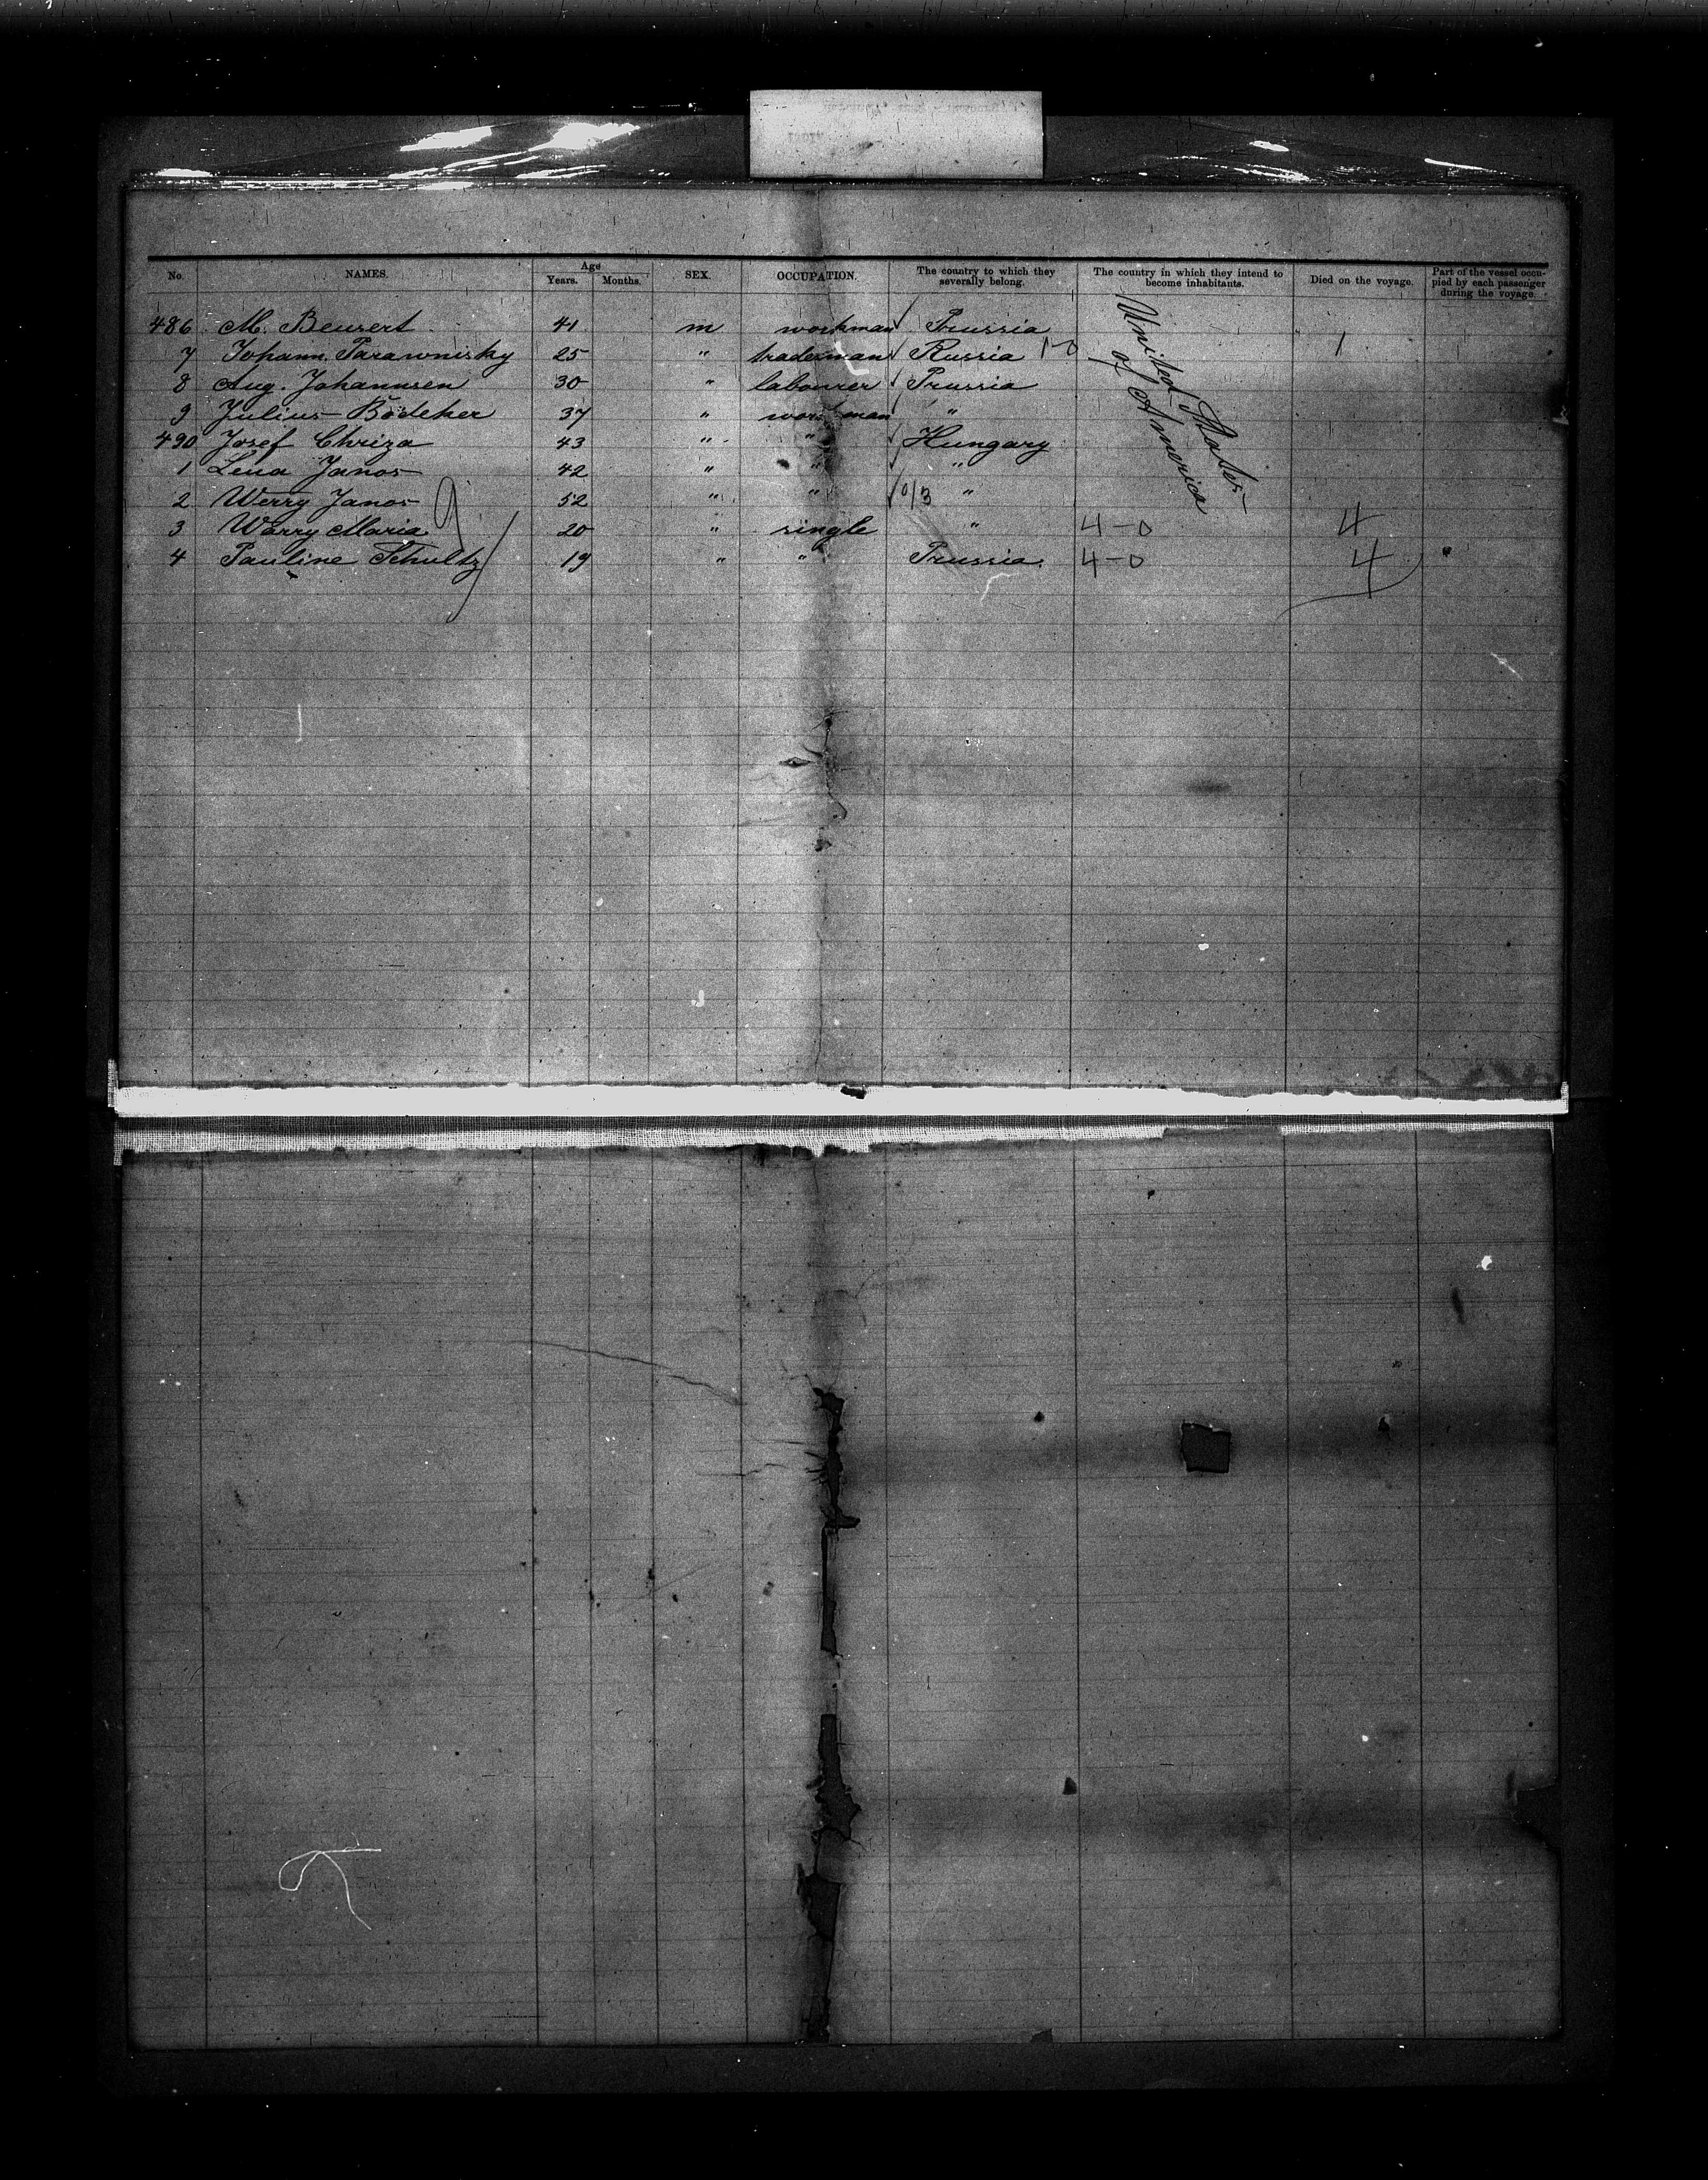 No. NAMES. Age Years. Months. SEX. OCCUPATION. The country to which they severally belong. The country in which they intend to become inhabitants. Died on the voyage. Part of the vessel occupied by each passenger during the voyage.
486 M. Beusert 41 m workman Prussia
7 Johann. Parawnisky 25 " tradesman Russia 1-0 1
8 Aug. Johannsen 30 " labourer Prussia
9 Julius Bödeker 37 " workman "
490 Josef Chriza 43 " " Hungary
1 Lena Janos 42 " " "
2 Werry Janos 52 " " 0/3 "
3 Warry Maria 20 " single " 4-0 4
4 Pauline Schultz 19 " " Prussia. 4-0 4
9
United States
of America